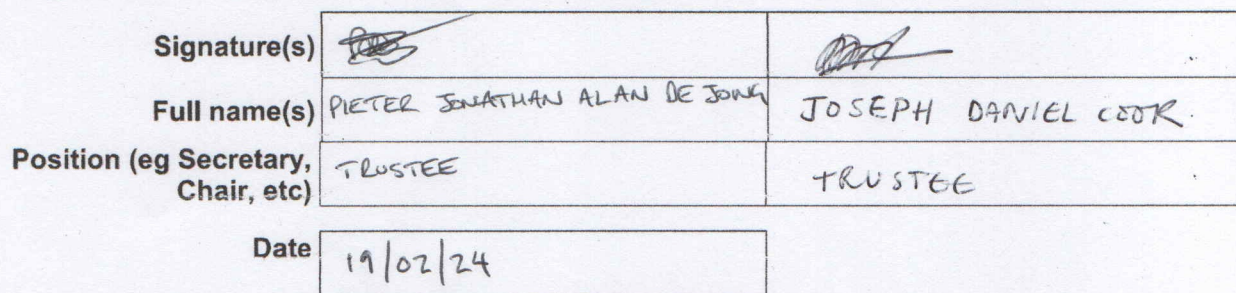 Signature(s)
Full name(s) PIETER JONATHAN ALAN DE JONG JOSEPH DANIEL COOK
Position (eg Secretary, TRUSTEE TRUSTEE
Chair, etc)
Date 19/02/24